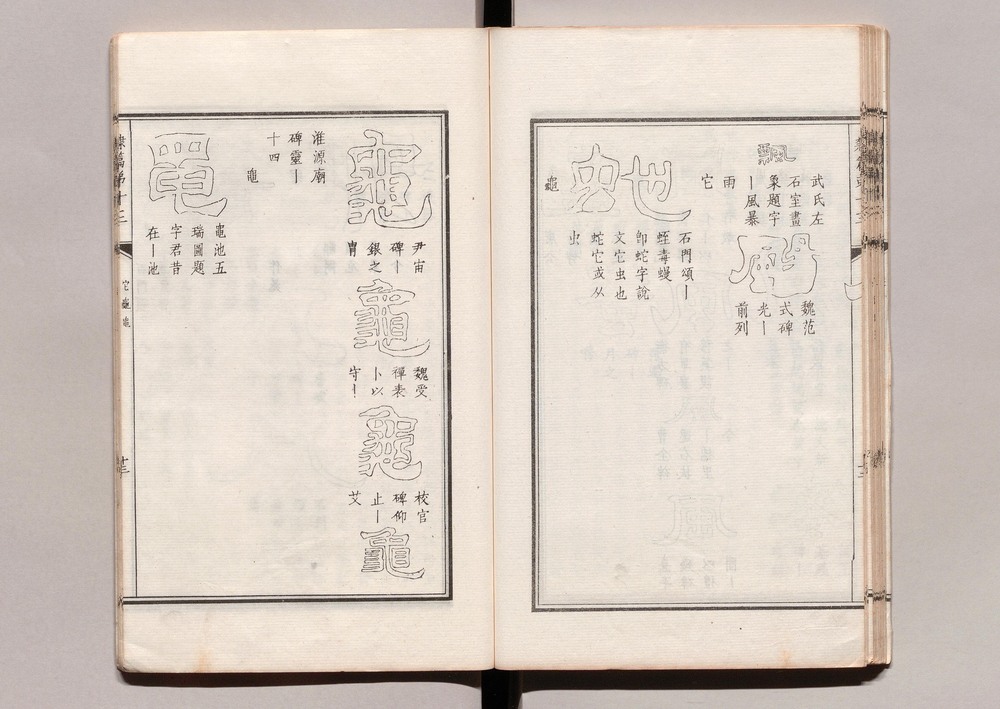 飄
武氏左
石室畫
象題字
｜風暴
雨
魏范
式碑
光｜
前列
它
石門頌｜
蛭毒蝮
即蛇字說
文它虫也
蛇它或从
虫
龜
龜
尹宙
碑｜
銀之
冑
龜
魏受
禪表
卜以
守｜
龜
校官
碑仰
止｜
艾
龜
淮源廟
碑靈｜
十四
黽
黽
黽池五
瑞圖題
字君昔
在｜池
隸篇第十三
它龜黽
十三